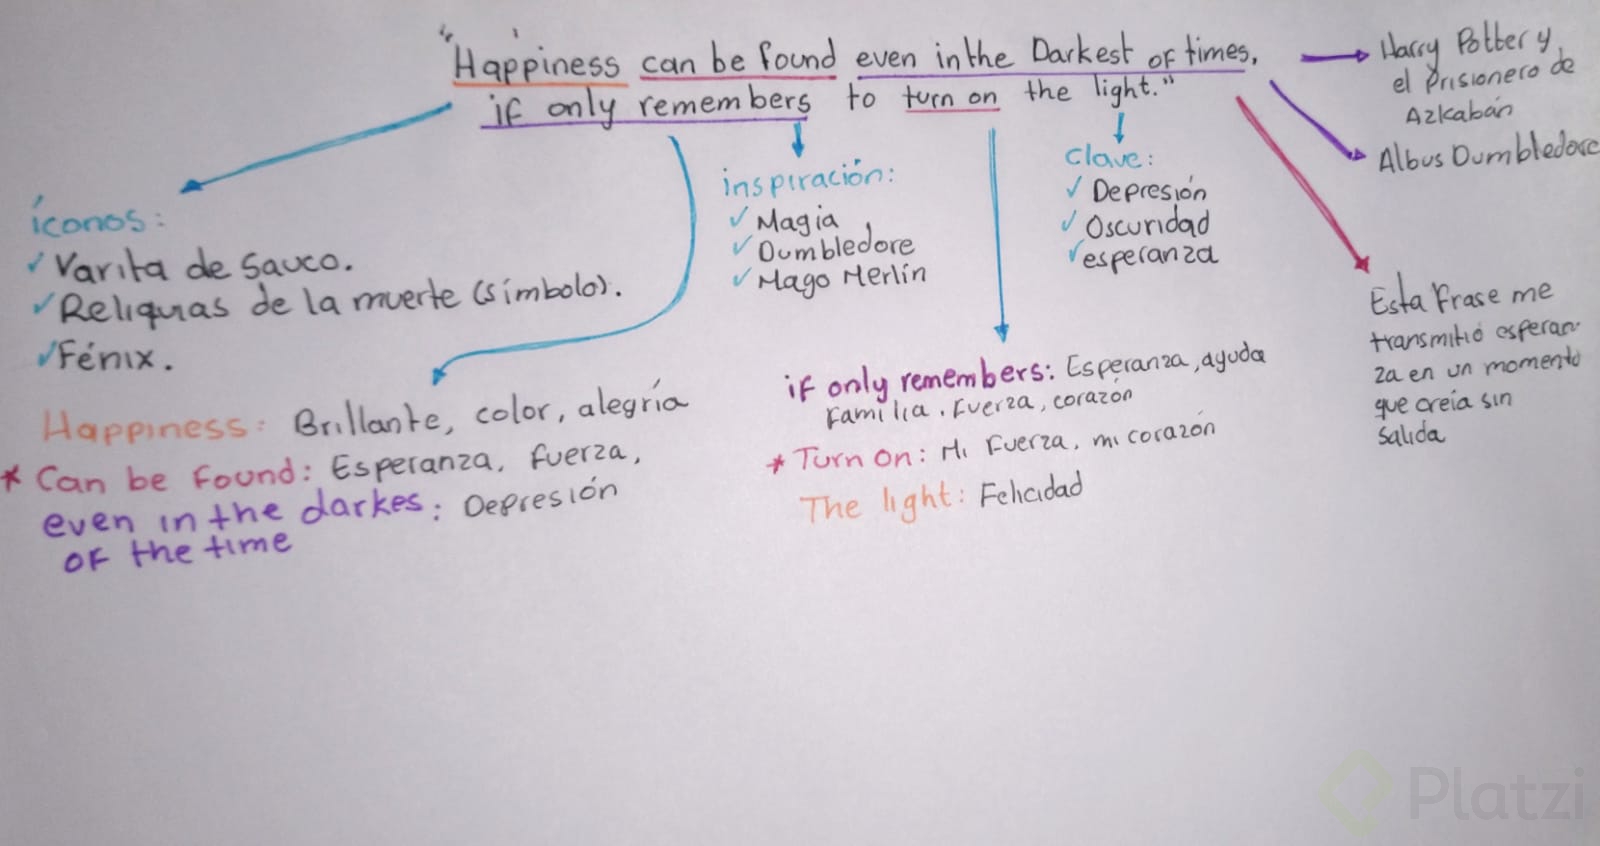 "Happiness can be found even in the Darkest of times,
if only remembers to turn on the light."
Harry Potter y
el prisionero de
Azkabán
Albus Dumbledore
Esta Frase me
transmitió esperan-
za en un momento
que creía sin
salida
íconos:
✓ Varita de Sauco.
✓ Reliquias de la muerte (símbolo).
✓ Fénix.
inspiración:
✓ Magia
✓ Dumbledore
✓ Mago Merlín
Clave:
✓ Depresión
✓ Oscuridad
✓ esperanza
Happiness: Brillante, color, alegría
* Can be found: Esperanza, fuerza,
even in the darkes: Depresión
of the time
if only remembers: Esperanza, ayuda
Familia. Fuerza, corazón
* Turn on: Mi Fuerza, mi corazón
The light: Felicidad
Platzi